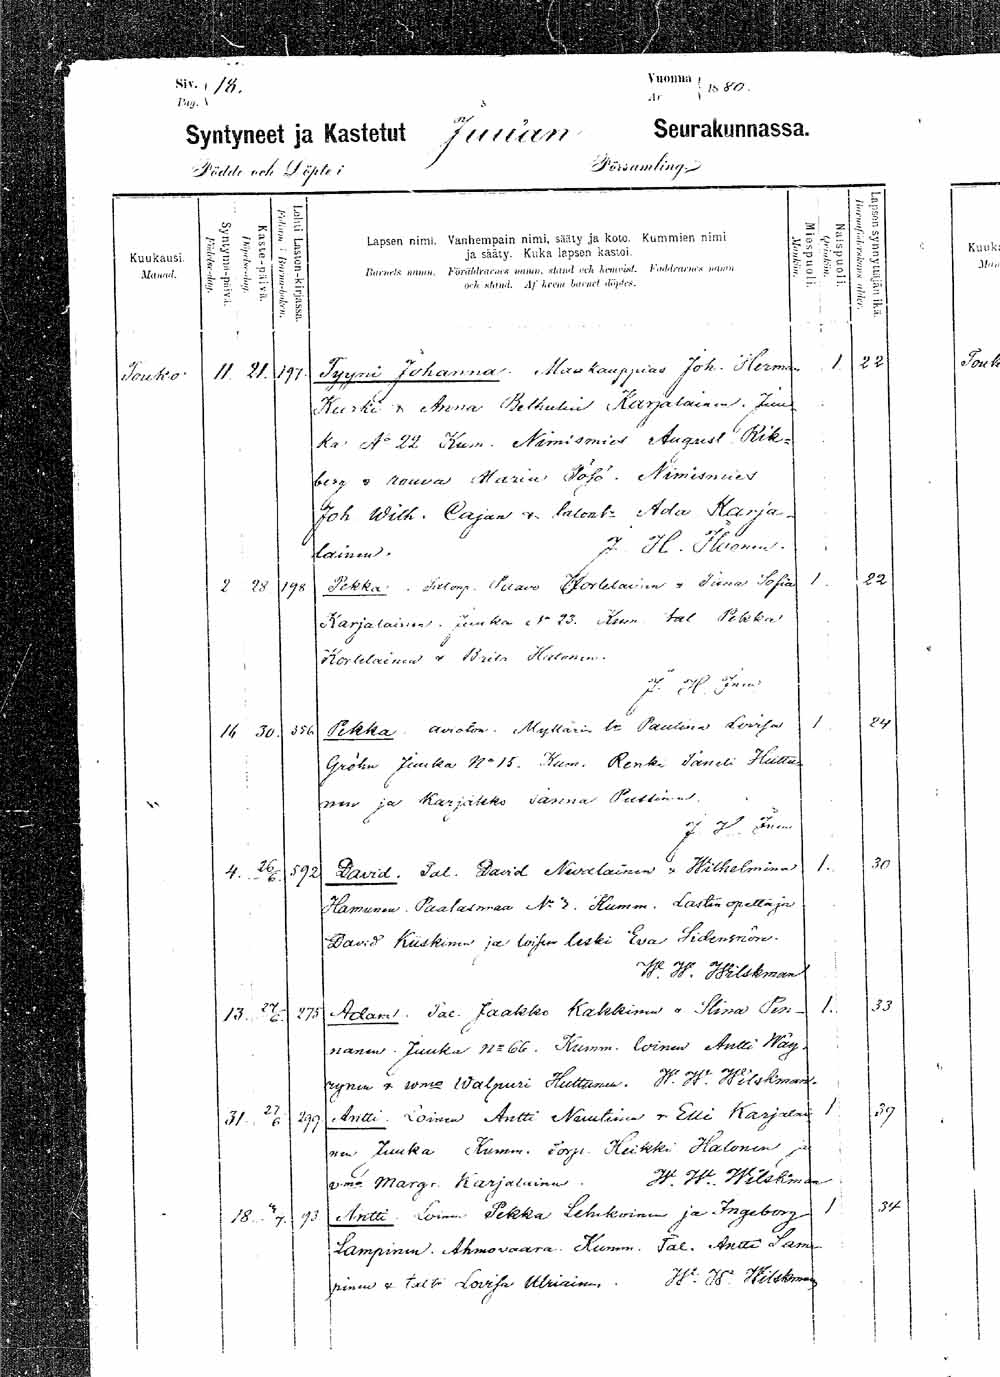 Siv. 18.
Pag.
Vuonna 1880.
År
Syntyneet ja Kastetut Juuan Seurakunnassa.
Födde och Döpte i Församling.
Kuukausi.
Månad.
Syntymä-päivä.
Födelse-dag.
Kaste-päivä.
Döpelse-dag.
Lehti Lasten-kirjassa.
Folium i Barna-boken.
Lapsen nimi. Vanhempain nimi, sääty ja koto. Kummien nimi
ja sääty. Kuka lapsen kastoi.
Barnets namn. Föräldrarnes namn, stånd och hemvist. Faddrarnes namn
och stånd. Af hvem barnet döptes.
Miespuoli.
Mankön.
Naispuoli.
Qvinkön.
Lapsen synnyttäjän ikä.
Barnaföderskans ålder.
Kuuka
Mån
Touko 11. 21. 197. Tyyni Johanna. Maakauppias Joh. Herman 1. 22
Kurki & Anna Bethulin Karjalainen. Juu-
ka No 22 Kum. Nimismies August Rik=
berg & rouva Maria Nimismies
Joh Wilh. Cajan & talont. Ada Karja-
lainen. J. H.
2 28 198 Pekka. Paavo Kortelainen & Tiina Sofia 1. 22
Karjalainen. Juuka No 23. Kum. tal Pekka
Kortelainen & Brita Halonen.
J. H.
16 30. 356 Pekka. avioton. Myllärin tr Paulina Lovisa 1 24
Gröhn Juuka No 15. Kum. Renki Taneli Huttu-
nen ja Karjakko Sanna
J H
4. 26/6 592 David. Tal. David Nevalainen & Wilhelmina 1. 30
Hamunen. Paalasmaa No 3. Kumm. Lasten opettaja
David Kiiskinen ja loisen leski Eva
W. W. Wilskman
13. 27/6. 275 Adam. Tal. Jaakko Kakkinen & Stina Pen- 1. 33
nanen. Juuka No 66. Kumm. loinen Antti Wäy-
rynen & vmo Walpuri Huttunen. W. W. Wilskman.
31. 27/6 299 Antti. Loinen Antti Nuutinen & Elli Karjalai 1 39
nen Juuka Kumm. Torp. Heikki Halonen ja
vmo Margr. Karjalainen. W. W. Wilskman
18. 93 Antti. Loinen Pekka Lehikoinen ja Ingeborg 1 34
Lampinen. Ahmovaara. Kumm. Tal. Antti Lam-
pinen & Lovisa W. W. Wilskman